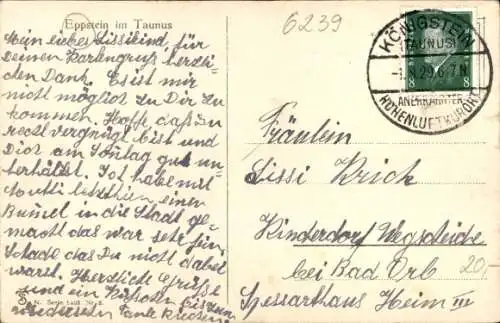 Eppstein im Taunus
6239
Mein liebes Lissikind, für
Deinen Kartengruß herzli-
chen Dank. Es ist mir
nicht möglich zu Dir zu
kommen. Hoffe, daß Du
recht vergnügt bist und
Dich am Sonntag gut un-
terhältst. Ich habe mit
letzthin einen
Bummel in die Stadt ge-
macht das war sehr fein
Schade das Du nicht dabei
warst. Herzliche Grüße
und ein Küßchen bis zum
Wiedersehen Tante
KÖNIGSTEIN
(TAUNUS)
-1.8.29.6-7N
ANERKANNTER
HÖHENLUFTKURORT
8
Fräulein
Lissi Krich
Kinderdorf Wegscheide
bei Bad Orb
Spessarthaus Heim III
20,-
N. Serie Nr. 2.